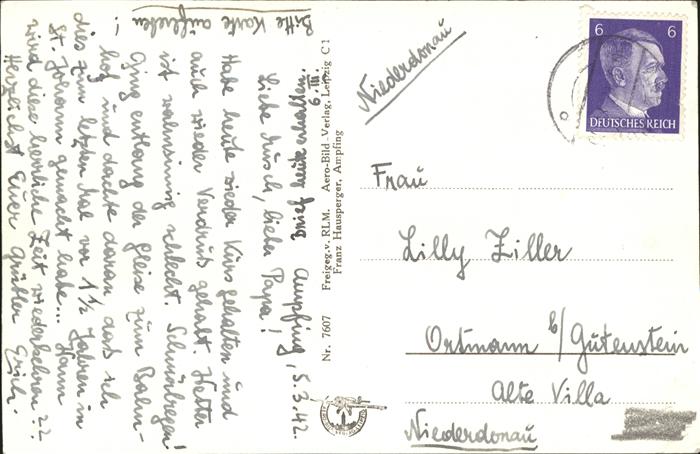 Bitte Karte aufheben!
Brief heute erhalten.
6. III.
Ampfing, 5.3.42.
Liebe Musch, lieber Papa!
Habe heute wieder Kurs gehalten und
auch wieder Verdruß gehabt. Wetter
ist wahnsinnig schlecht. Schnürlregen!
Ging entlang der Gleise zum Bahn-
hof und dachte daran daß ich
dies zum letzten Mal vor 1½ Jahren in
St. Johann gemacht habe... Wann
wird diese herrliche Zeit wiederkehren??
Herzlichst Euer Erich.
Nr. 7607 Freigeg. v. RLM. Aero-Bild-Verlag, Leipzig C 1
Franz Hausperger, Ampfing
Niederdonau
6 6
DEUTSCHES REICH
Frau
Lilly Ziller
Ortmann b/Gutenstein
Alte Villa
Niederdonau